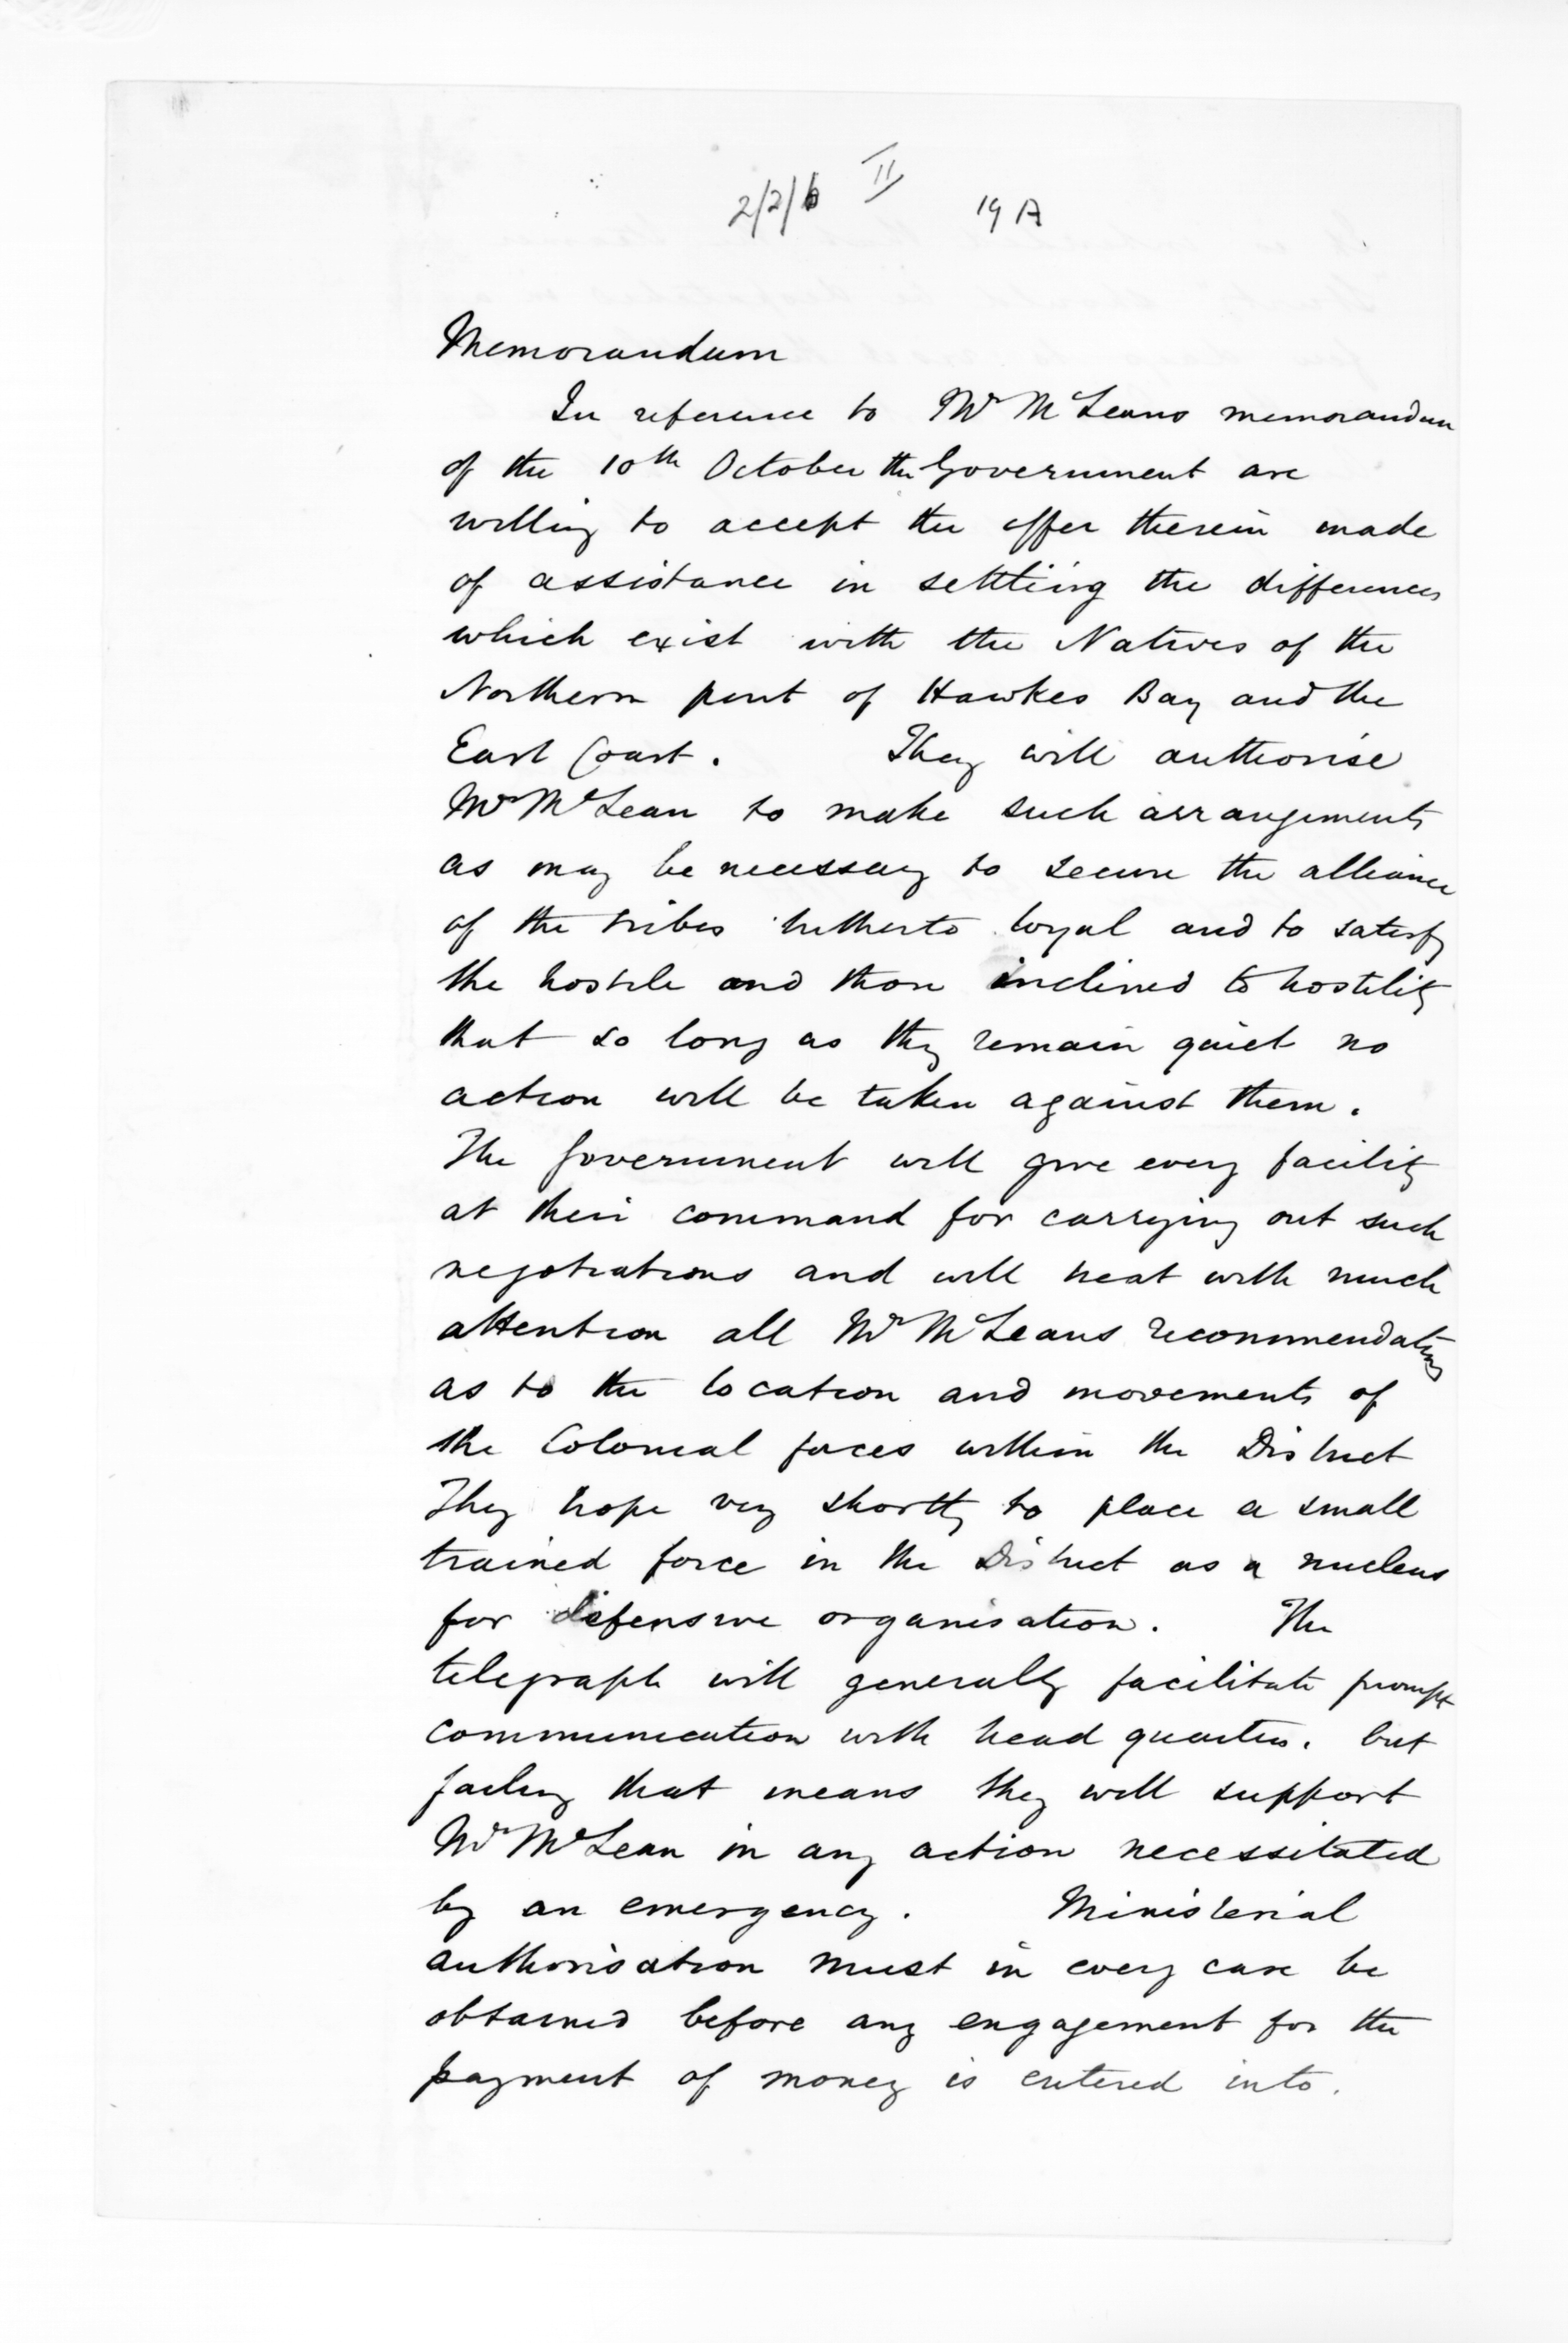 2/2/6 II 19 A
Memorandum
In reference to Mr McLeans memorandum
of the 10th October the Government are
willing to accept the offer therein made
of assistance in settling the differences
which exist with the Natives of the
Northern part of Hawkes Bay and the
East Coast. They will authorise
Mr McLean to make such arrangements
as may be necessary to secure the alliance
of the tribes hitherto loyal and to satisfy
the hostile and those inclined to hostility
that so long as they remain quiet no
action will be taken against them.
The Government will give every facility
at their command for carrying out such
negotiations and will treat with much
attention all Mr McLeans recommendations
as to the location and movements of
the Colonial forces within the District
They hope very shortly to place a small
trained force in the District as a nucleus
for defensive organisation. The
telegraph will generally facilitate prompt
communication with head quarters. but
failing that means they will support
Mr McLean in any action necessitated
by an emergency. Ministerial
authorisation must in every case be
obtained before any engagement for the
payment of money is entered into.